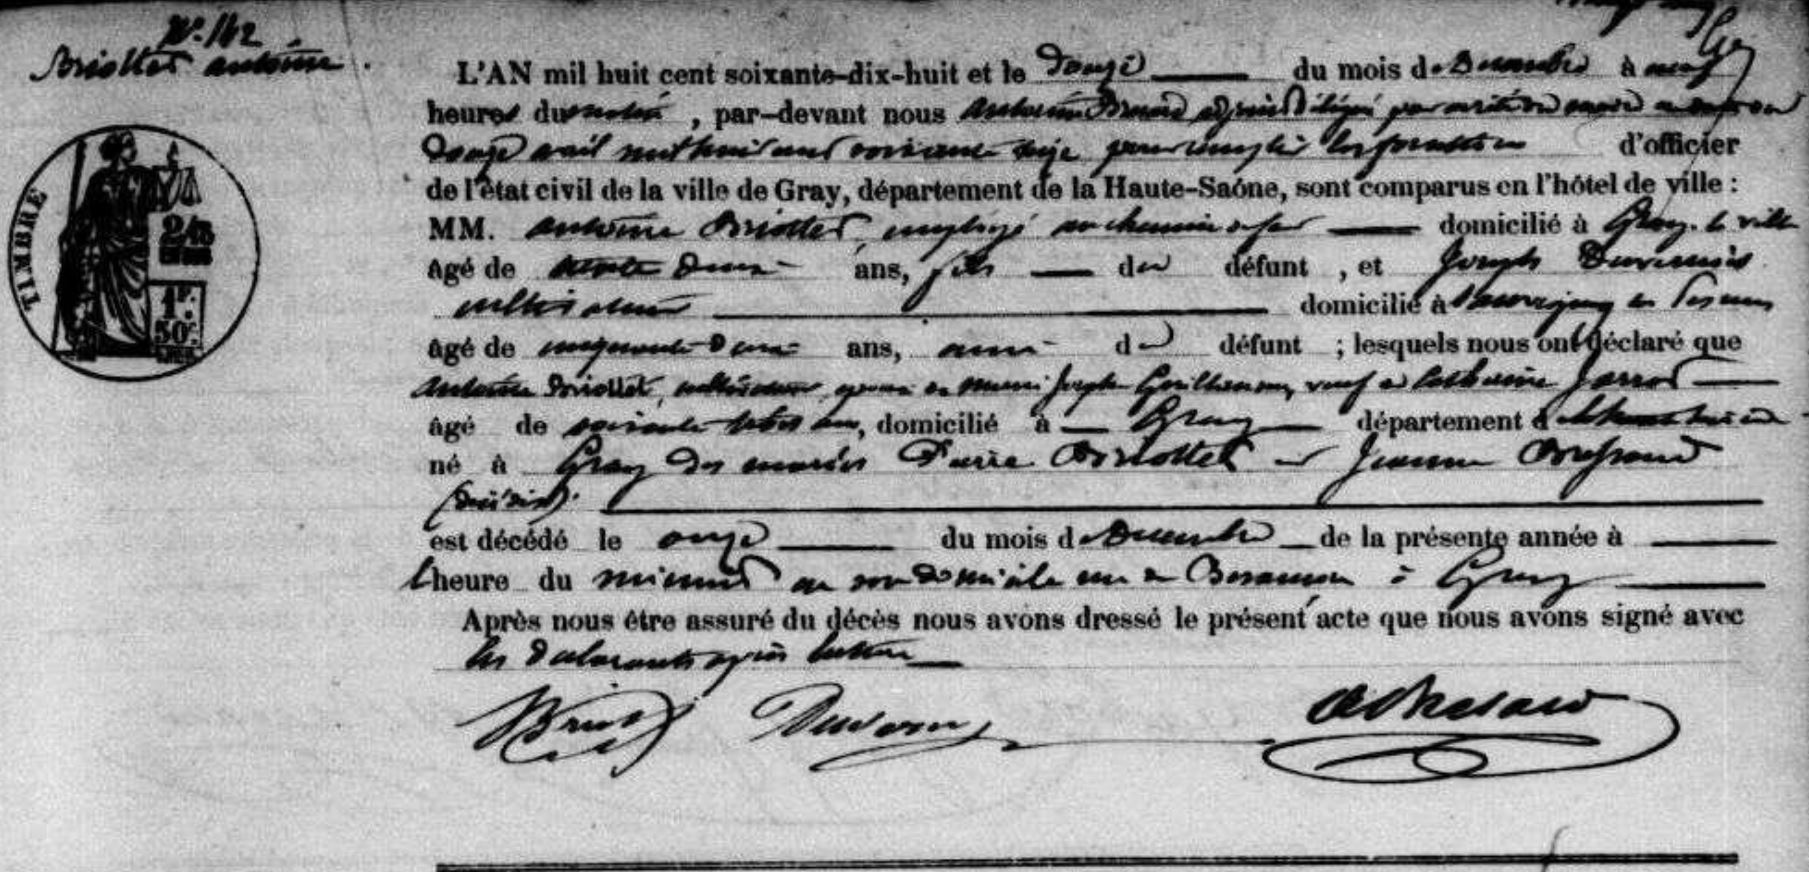 N.º 162
Briottet antoine.
TIMBRE
2/10
1F.
50C.
L'AN mil huit cent soixante-dix-huit et le Douze du mois de Decembre à neuf
heures du matin, par-devant nous antoine adjoint délégué par arrêté du maire en date du
Douze avril mil huit cent soixante pour remplir les fonctions d'officier
de l'état civil de la ville de Gray, département de la Haute-Saône, sont comparus en l'hôtel de ville :
MM. antoine Briottet, employé au chemin de fer domicilié à Gray la ville
âgé de trente deux ans, fils du défunt, et Joseph
cultivateur domicilié à
âgé de cinquante deux ans, ami du défunt ; lesquels nous ont déclaré que
antoine Briottet, cultivateur, époux de Marie Joseph Guillemin, veuf de Catherine Jarrot
âgé de soixante ans, domicilié à Gray département de
né à Gray des mariés Pierre Briottet et Jeanne
(décédés).
est décédé le onze du mois de Decembre de la présente année à
l'heure du minuit en son domicile rue de Besançon à Gray
Après nous être assuré du décès nous avons dressé le présent acte que nous avons signé avec
les déclarants après lecture
Briottet